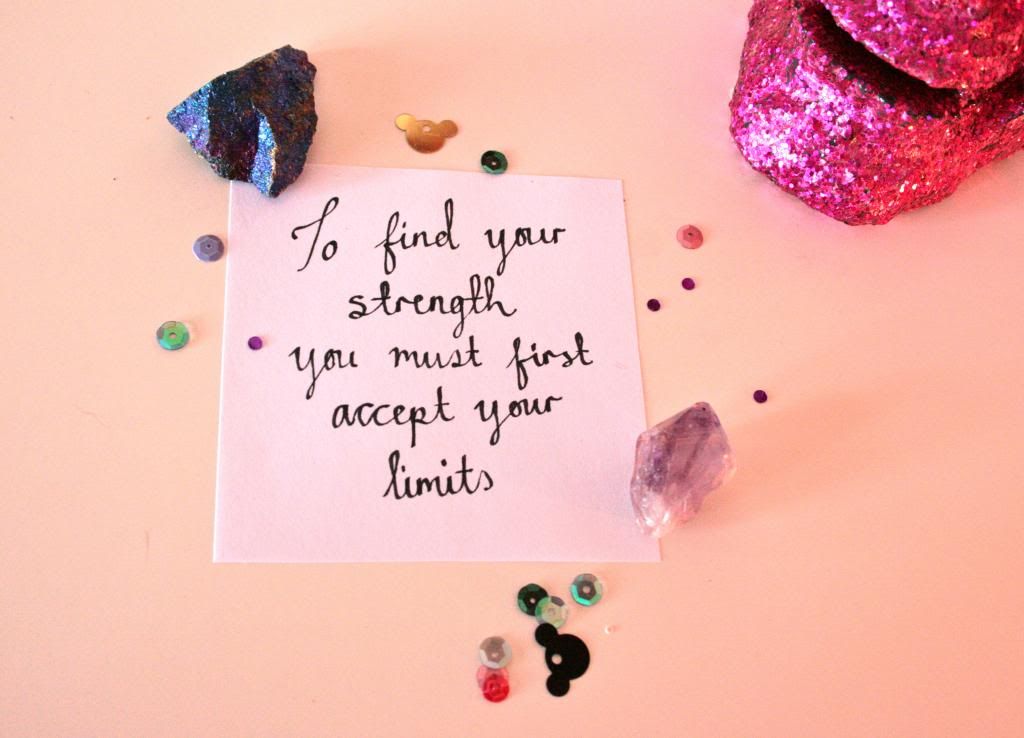 To find your
strength
you must first
accept your
limits